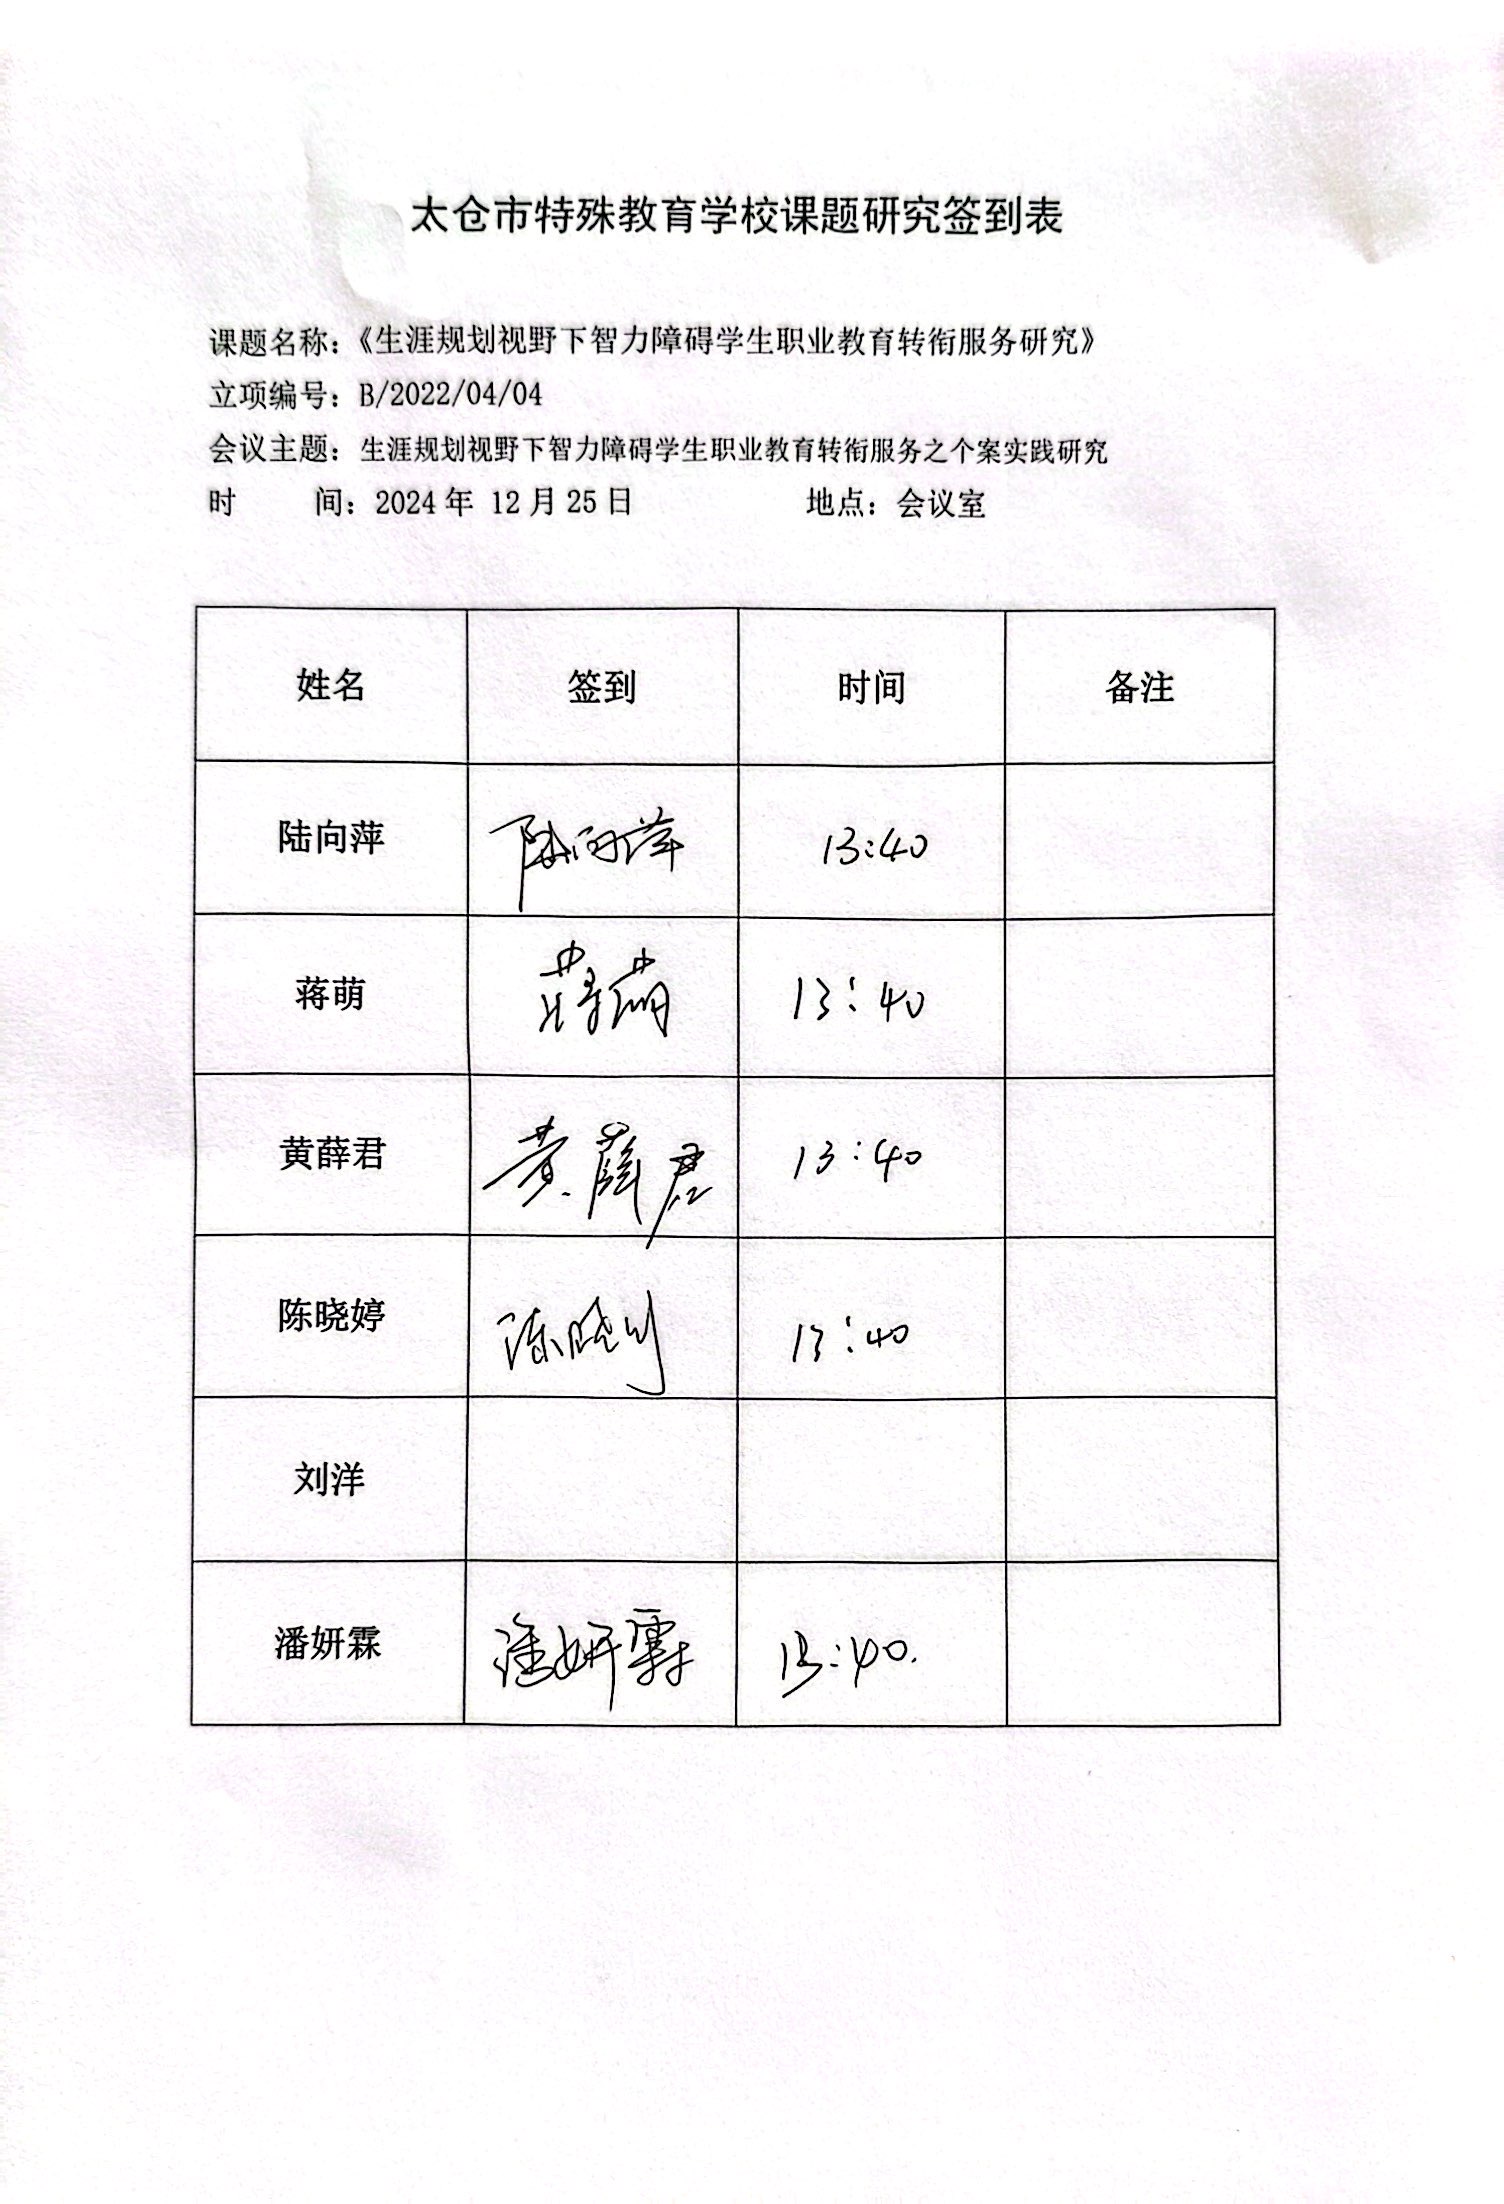 太仓市特殊教育学校课题研究签到表
课题名称：《生涯规划视野下智力障碍学生职业教育转衔服务研究》
立项编号：B/2022/04/04
会议主题：生涯规划视野下智力障碍学生职业教育转衔服务之个案实践研究
时 间：2024年 12月25日 地点：会议室
姓名 签到 时间 备注
陆向萍 陆向萍 13:40
蒋萌 蒋萌 13:40
黄薛君 黄薛君 13:40
陈晓婷 陈晓 13:40
刘洋
潘妍霖 潘妍霖 13:40.